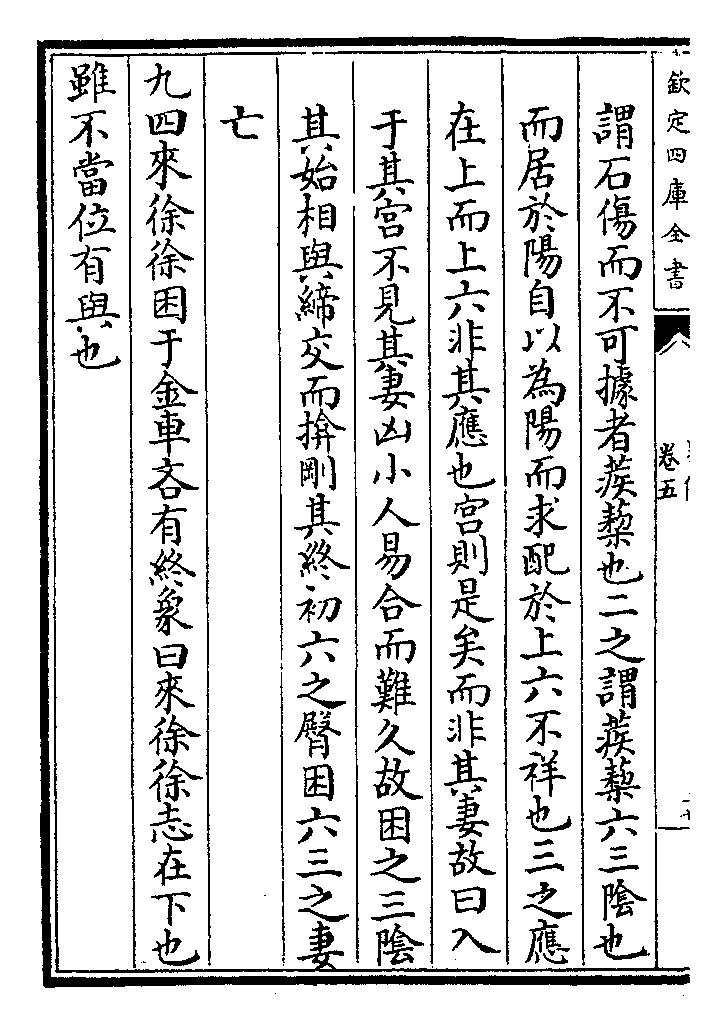 欽定四庫全書
卷五
謂石傷而不可據者蒺蔾也二之謂蒺蔾六三陰也
而居於陽自以為陽而求配於上六不祥也三之應
在上而上六非其應也宮則是矣而非其妻故曰入
于其宮不見其妻凶小人易合而難久故困之三陰
其始相與締交而揜剛其終初六之臀困六三之妻
亡
九四來徐徐困于金車吝有終象曰來徐徐志在下也
雖不當位有與也